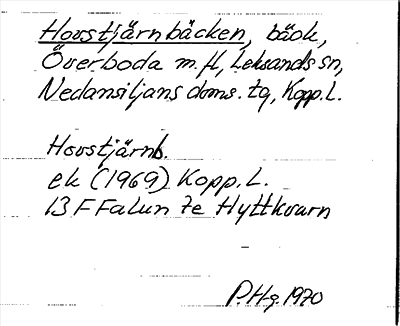 Hovstjärnbäcken, bäck,
Överboda m.fl, Leksands sn,
Nedansiljans doms. tg, Kopp.L.
Hovstjärnb.
ek (1969) Kopp.L.
13 F Falun 7e Hyttkvarn
P.Hg. 1970